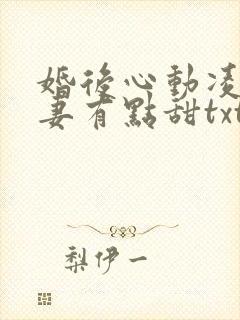 婚後心動凌
妻有點甜txt
梨伊一